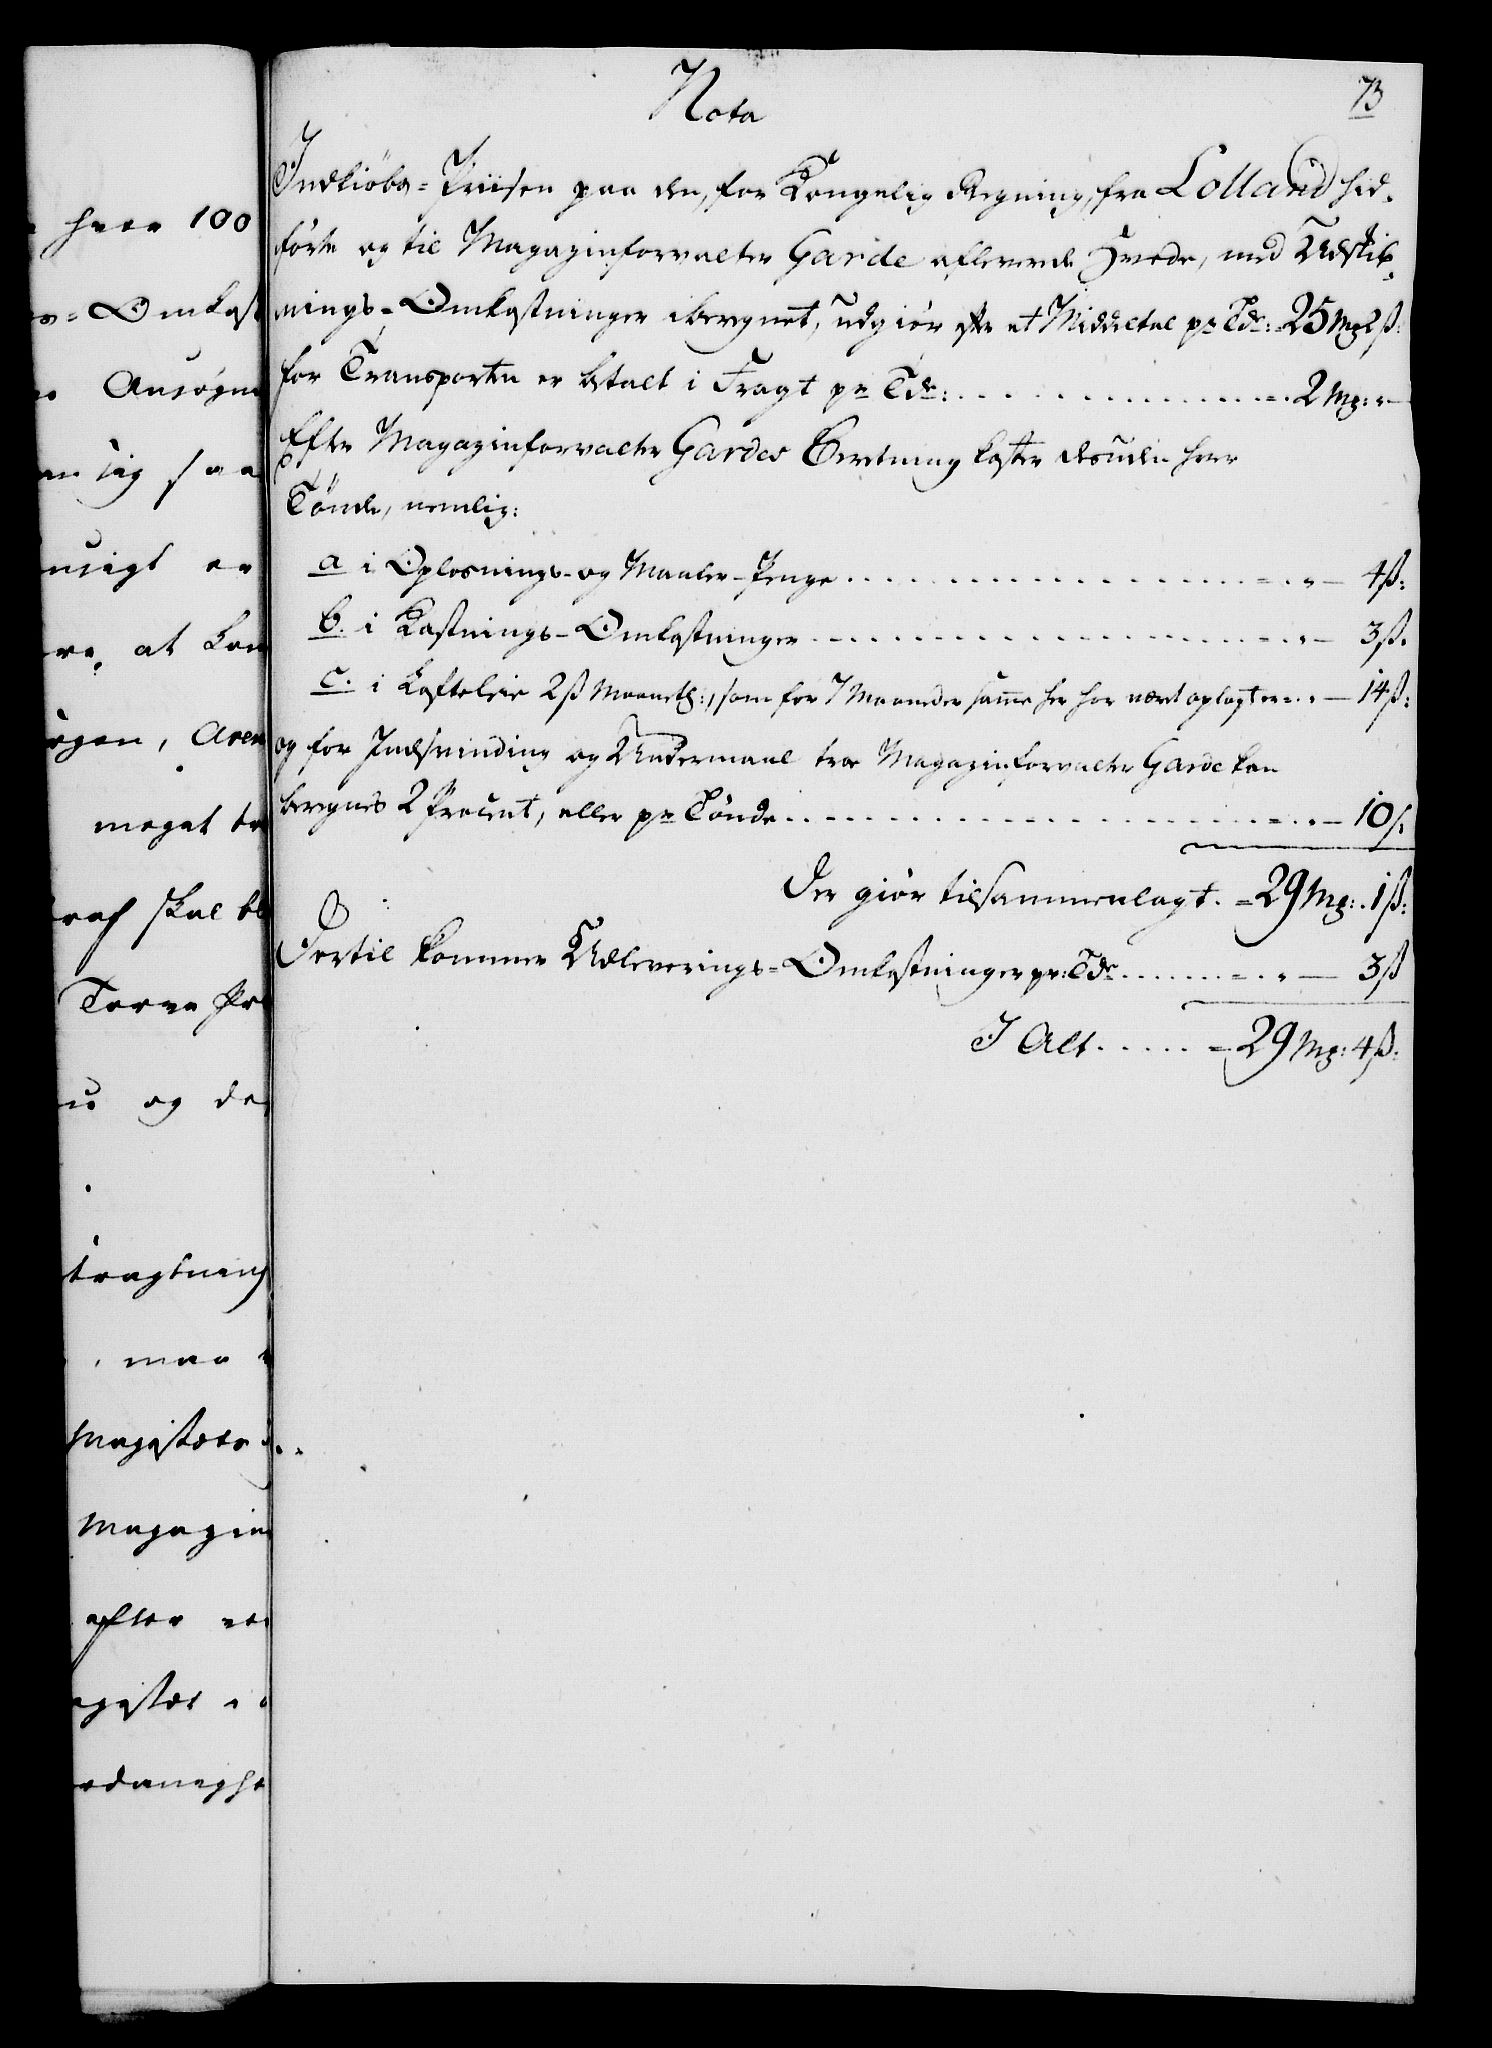 Nota
73
Indkiöbs=Priisen paa den, for Kongelig Regning, fra Lolland hid¬
förte og til Magazinforvalter Garde afleverede Hvede, med Udskib¬
nings=Omkostninger iberegnet, udgiør efter et Middeltal pr Tde:=25 Mg 2 ß:
for Transporten er betalt i Fragt pr Tde: . . . . . . =. 2 Mg: "—
Efter Magazinforvalter Gardes Beretning koster desuden hver
Tönde, nemlig:
a i Oplosnings- og Maaler-Penge . . . . . . = . " — 4 ß:
b. i Kastnings-Omkostninger . . . . . . = . " — 3 ß.
c. i Loftsleie 2 ß Maanetl:, som for 7 Maaneder samme her har været oplagt er =. " — 14 ß:
og for Indsvinding og Undermaal troer Magazinforvalter Garde kan
beregnes 2 Procent, eller pr Tönde . . . . . . = . " — 10 ß.
Der giør tilsammenlagt. = 29 Mg: 1 ß:
Dertil kommer Udleverings=Omkostninger pr: Tde . . . . . . = . " — 3 ß
I Alt . . . . . = 29 Mg: 4 ß:
hver 100
=Omkost
Ansøgn
jeg saa
usigt er
re, at kon
rgen, Aven
meget be
raf skal bl
Torve Pri
u og de
tragtning
, maa
Magistrats
Magazin
efter
ordaneghe